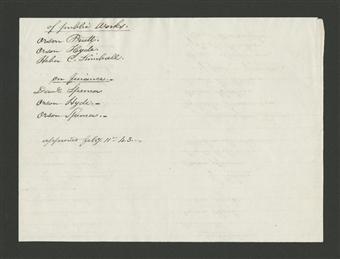 of public Works.
Orson Pratt.
Orson Hyde.
Heber C. Kimball.
on finance.
Danl. Spencer
Orson Hyde.
Orson Spencer.
appointed Feby. 11th 43.